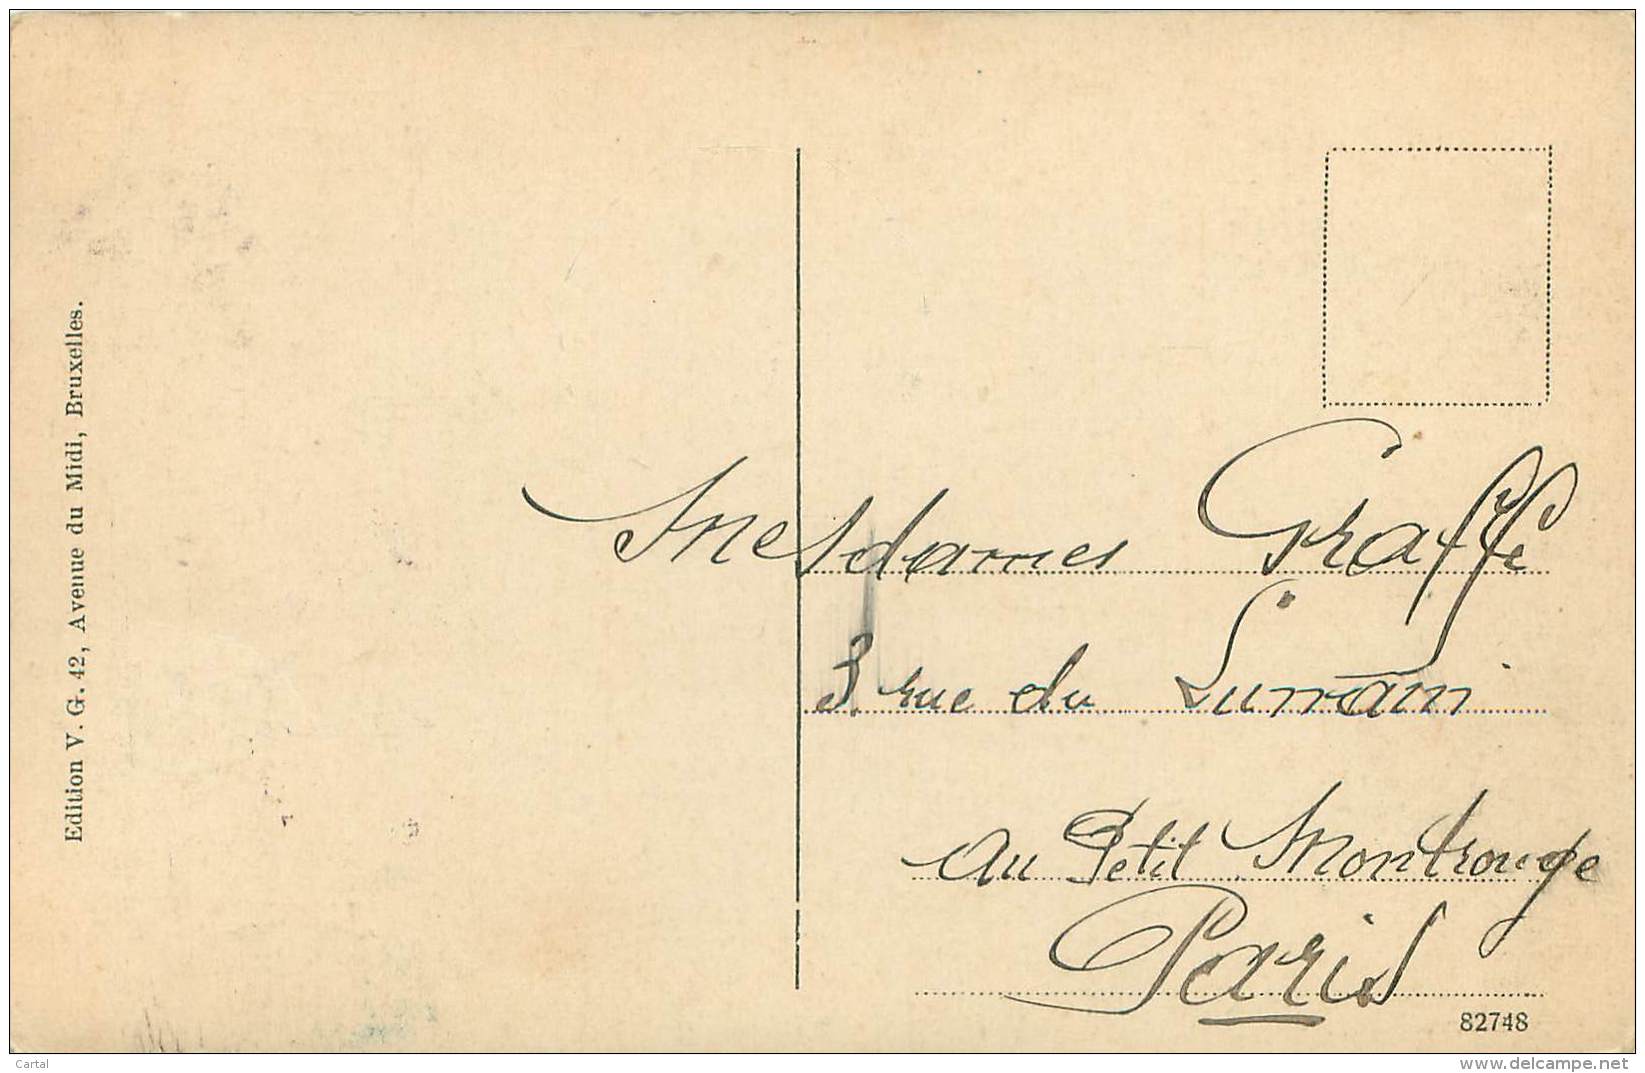 Edition V. G. 42, Avenue du Midi, Bruxelles.
Mesdames Graffe
3 rue du Lunain
au Petit Montrouge
Paris
82748
Cartal
delcampe.net